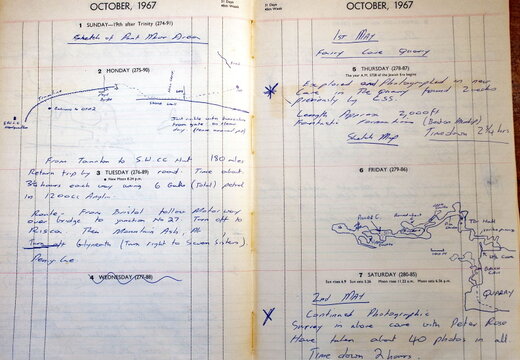 OCTOBER, 1967
31 Days
40th Week
1 SUNDAY—19th after Trinity (274-91)
Sketch of Pant Mawr Area
2 MONDAY (275-90)
Pant
Mawr
Fire Line
S.W.C.C
Headquarters
Just visible with binoculars
from gate on clear
day
From Taunton to S.W.CC Hut 180 miles
Return trip by road. Time about
3 TUESDAY (276-89)
● New Moon 8.24 p.m.
3½ hours each way using 6 Galls (Total) petrol
in 1200cc Anglia.
Route:- From Bristol follow Motorway
over bridge to junction No 27. Turn off to
Risca. Then Mountain Ash,
Turn off Glynneath (Turn right to Seven Sisters)
Peny-Cae
4 WEDNESDAY (277-88)
OCTOBER, 1967
31 Days
40th Week
1ST MAY
Fairy Cave Quarry
5 THURSDAY (278-87)
The year A.M. 5728 of the Jewish Era begins
Explored and Photographed in new
Cave in The Quarry found 2 weeks
Previously by C.S.S.
Length Approx 2,000ft
Fantastic Formations (Best on Mendip)
Time down 2½ hrs
Sketch Map
6 FRIDAY (279-86)
QUARRY
7 SATURDAY (280-85)
Sun rises 6.9 Sun sets 5.26 Moon rises 11.22 a.m. Moon sets 6.56 p.m.
2nd MAY
Continued Photographic
Survey in above cave with Peter Rose
Have taken about 40 photos in all
Time down 2 hours.